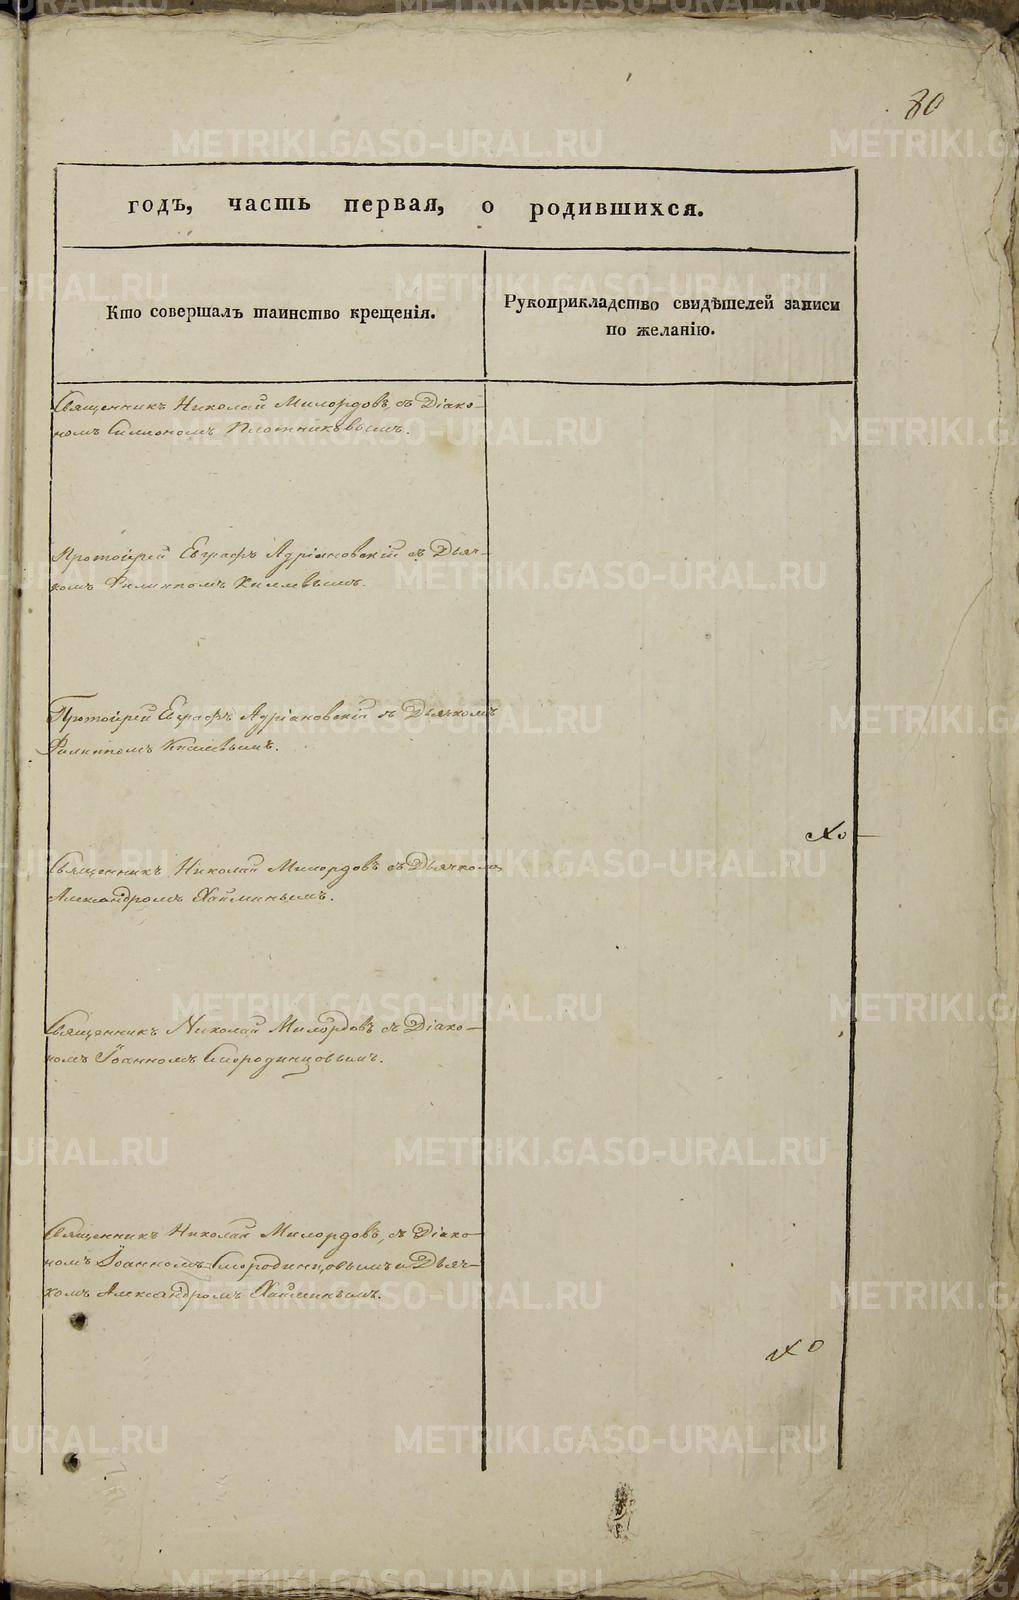 80
годъ, часть первая, о родившихся.
Кто совершалъ таинство крещенія.
Рукоприкладство свидѣтелей записи
по желанію.
Священникъ Николай Милордовъ, съ Діако-
номъ Симономъ Плотниковымъ.
Протоіерей Евграфъ Адріановскій съ Дьяч-
комъ Филиппомъ
Протоіерей Евграфъ Адріановскій съ Дьячкомъ
Филиппомъ
Священникъ Николай Милордовъ съ Дьячкомъ
Александромъ Хайминымъ.
Священникъ Николай Милордовъ съ Діако-
номъ Іоанномъ Смородинцовымъ.
Священникъ Николай Милордовъ, съ Діако-
номъ Іоанномъ Смородинцовымъ и Дьяч-
комъ Александромъ Хайминымъ.
METRIKI.GASO-URAL.RU